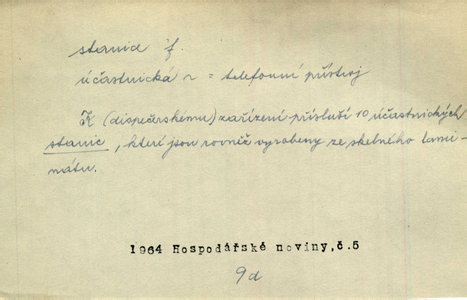 stanice f.
účastnická ~ = telefonní přístroj
K (dispečerskému) zařízení přísluší 10 účastnických
stanic, které jsou rovněž vyrobeny ze skelného lami-
nátu.
1964 Hospodářské noviny,č.5
9d